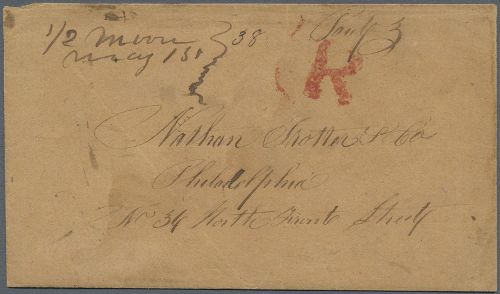 1/2 Moon 38
May 1st
K
Nathan Trotter & Co
Philadelphia
No 36 North Front Street